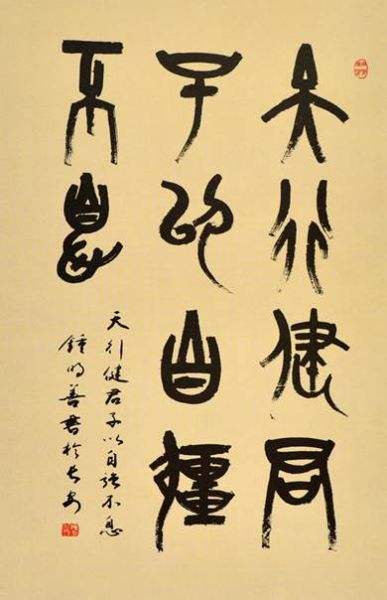 天行健君
子以自彊
不息
天行健君子以自強不息
鍾明善書於長安